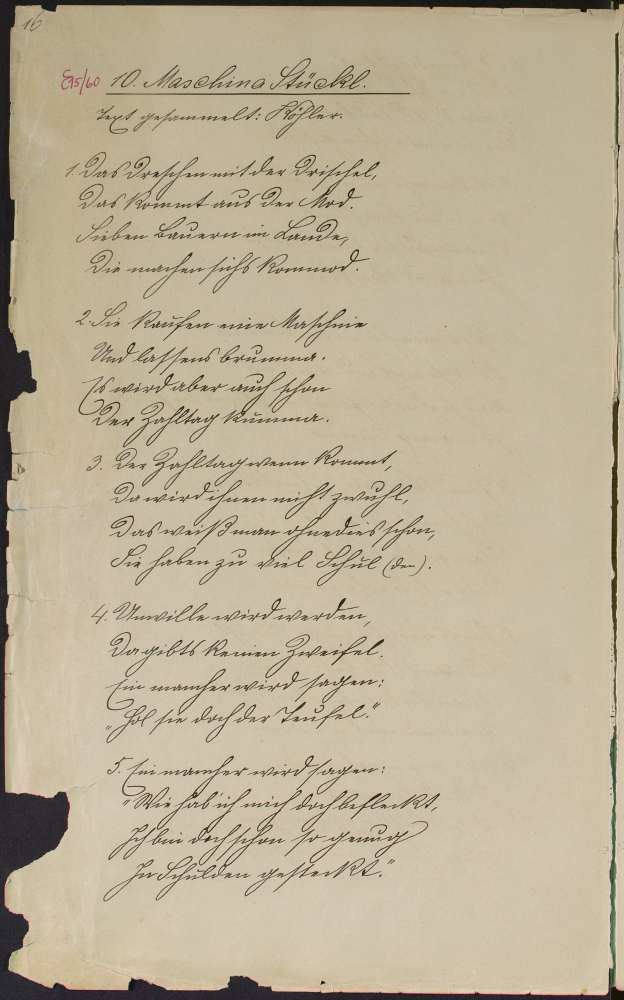 16
E95/60 10. Maschina Stückl.
Text gesammelt: Köhler.
1. Das Dreschen mit der Drischel,
Das kommt aus der Mod.
Sieben Bauern im Lande,
Die machen sichs kommod.
2. Sie kaufen eine Maschine
Und lassens brumma.
Es wird aber auch schon
Der Zahltag kumma.
3. Der Zahltag wenn kommt,
Da wird ihnen nicht zwuhl,
Das weiß man ohnedies schon,
Sie haben zu viel Schul (den).
4. Unwille wird werden,
Da gibts keinen Zweifel.
Ein mancher wird sagen:
"Hol sie doch der Teufel."
5. Ein mancher wird sagen:
"Wie hab ich mich doch befleckt,
Ich bin doch schon so genug
In Schulden gesteckt."